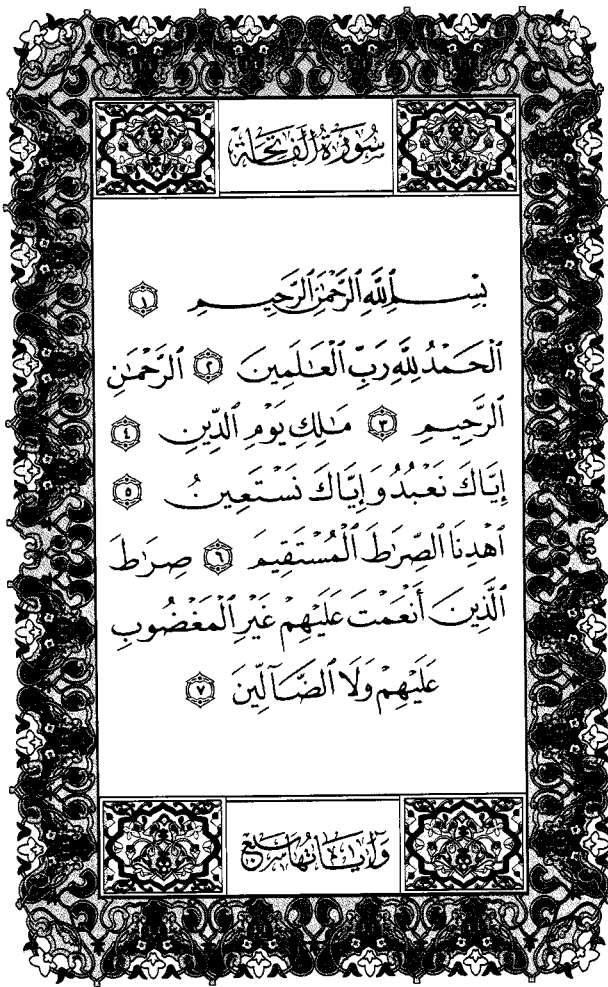 سُورَةُ الْفَاتِحَةِ
بِسْمِ ٱللَّهِ ٱلرَّحْمَٰنِ ٱلرَّحِيمِ ١
ٱلْحَمْدُ لِلَّهِ رَبِّ ٱلْعَٰلَمِينَ ٢ ٱلرَّحْمَٰنِ
ٱلرَّحِيمِ ٣ مَٰلِكِ يَوْمِ ٱلدِّينِ ٤
إِيَّاكَ نَعْبُدُ وَإِيَّاكَ نَسْتَعِينُ ٥
ٱهْدِنَا ٱلصِّرَٰطَ ٱلْمُسْتَقِيمَ ٦ صِرَٰطَ
ٱلَّذِينَ أَنْعَمْتَ عَلَيْهِمْ غَيْرِ ٱلْمَغْضُوبِ
عَلَيْهِمْ وَلَا ٱلضَّآلِّينَ ٧
وَآيَاتُهَا سَبْعٌ